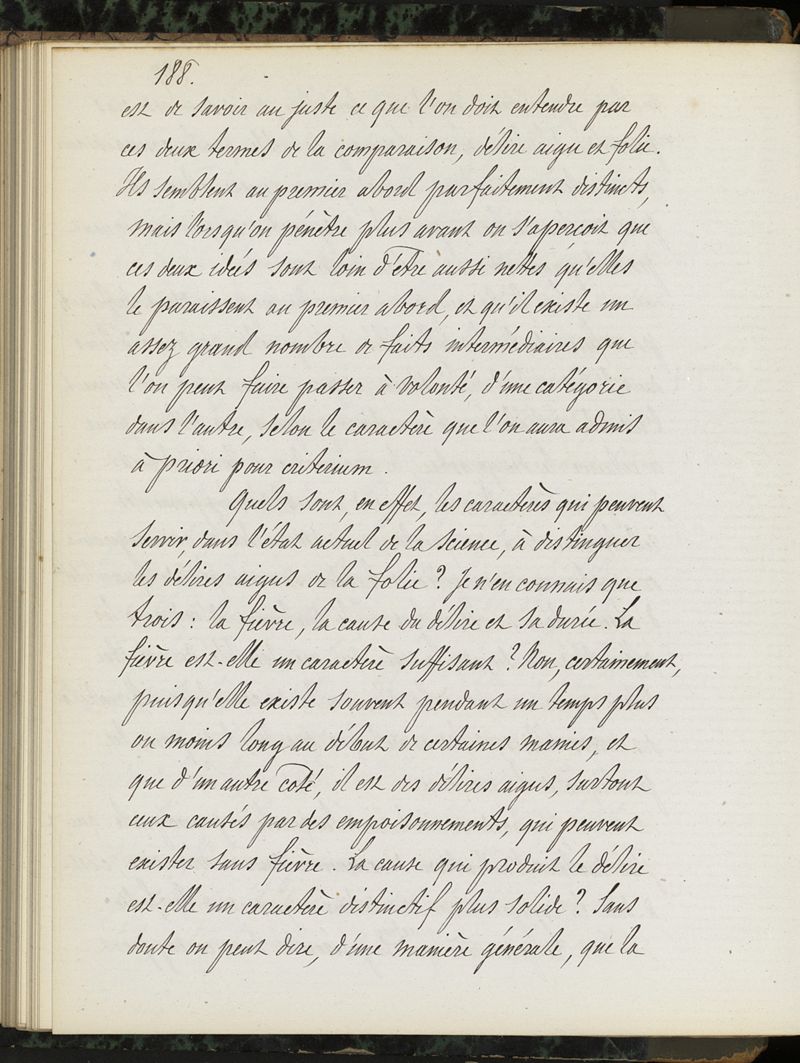 188.
est de savoir au juste ce que l'on doit entendre par
ces deux termes de la comparaison, délire aigu et folie.
Ils semblent au premier abord parfaitement distincts,
mais lorsqu'on pénètre plus avant on s'aperçoit que
ces deux idées sont loin d'être aussi nettes qu'elles
le paraissent au premier abord, et qu'il existe un
assez grand nombre de faits intermédiaires que
l'on peut faire passer à volonté, d'une catégorie
dans l'autre, selon le caractère que l'on aura admis
à priori pour criterium.
Quels sont, en effet, les caractères qui peuvent
servir, dans l'état actuel de la science, à distinguer
les délires aigus de la folie? Je n'en connais que
trois: la fièvre, la cause du délire et sa durée. La
fièvre est-elle un caractère suffisant? Non, certainement,
puisqu'elle existe souvent pendant un temps plus
ou moins long au début de certaines manies, et
que d'un autre coté, il est des délires aigus, surtout
ceux causés par des empoisonnements, qui peuvent
exister sans fièvre. La cause qui produit le délire
est-elle un caractère distinctif plus solide? Sans
doute on peut dire, d'une manière générale, que la